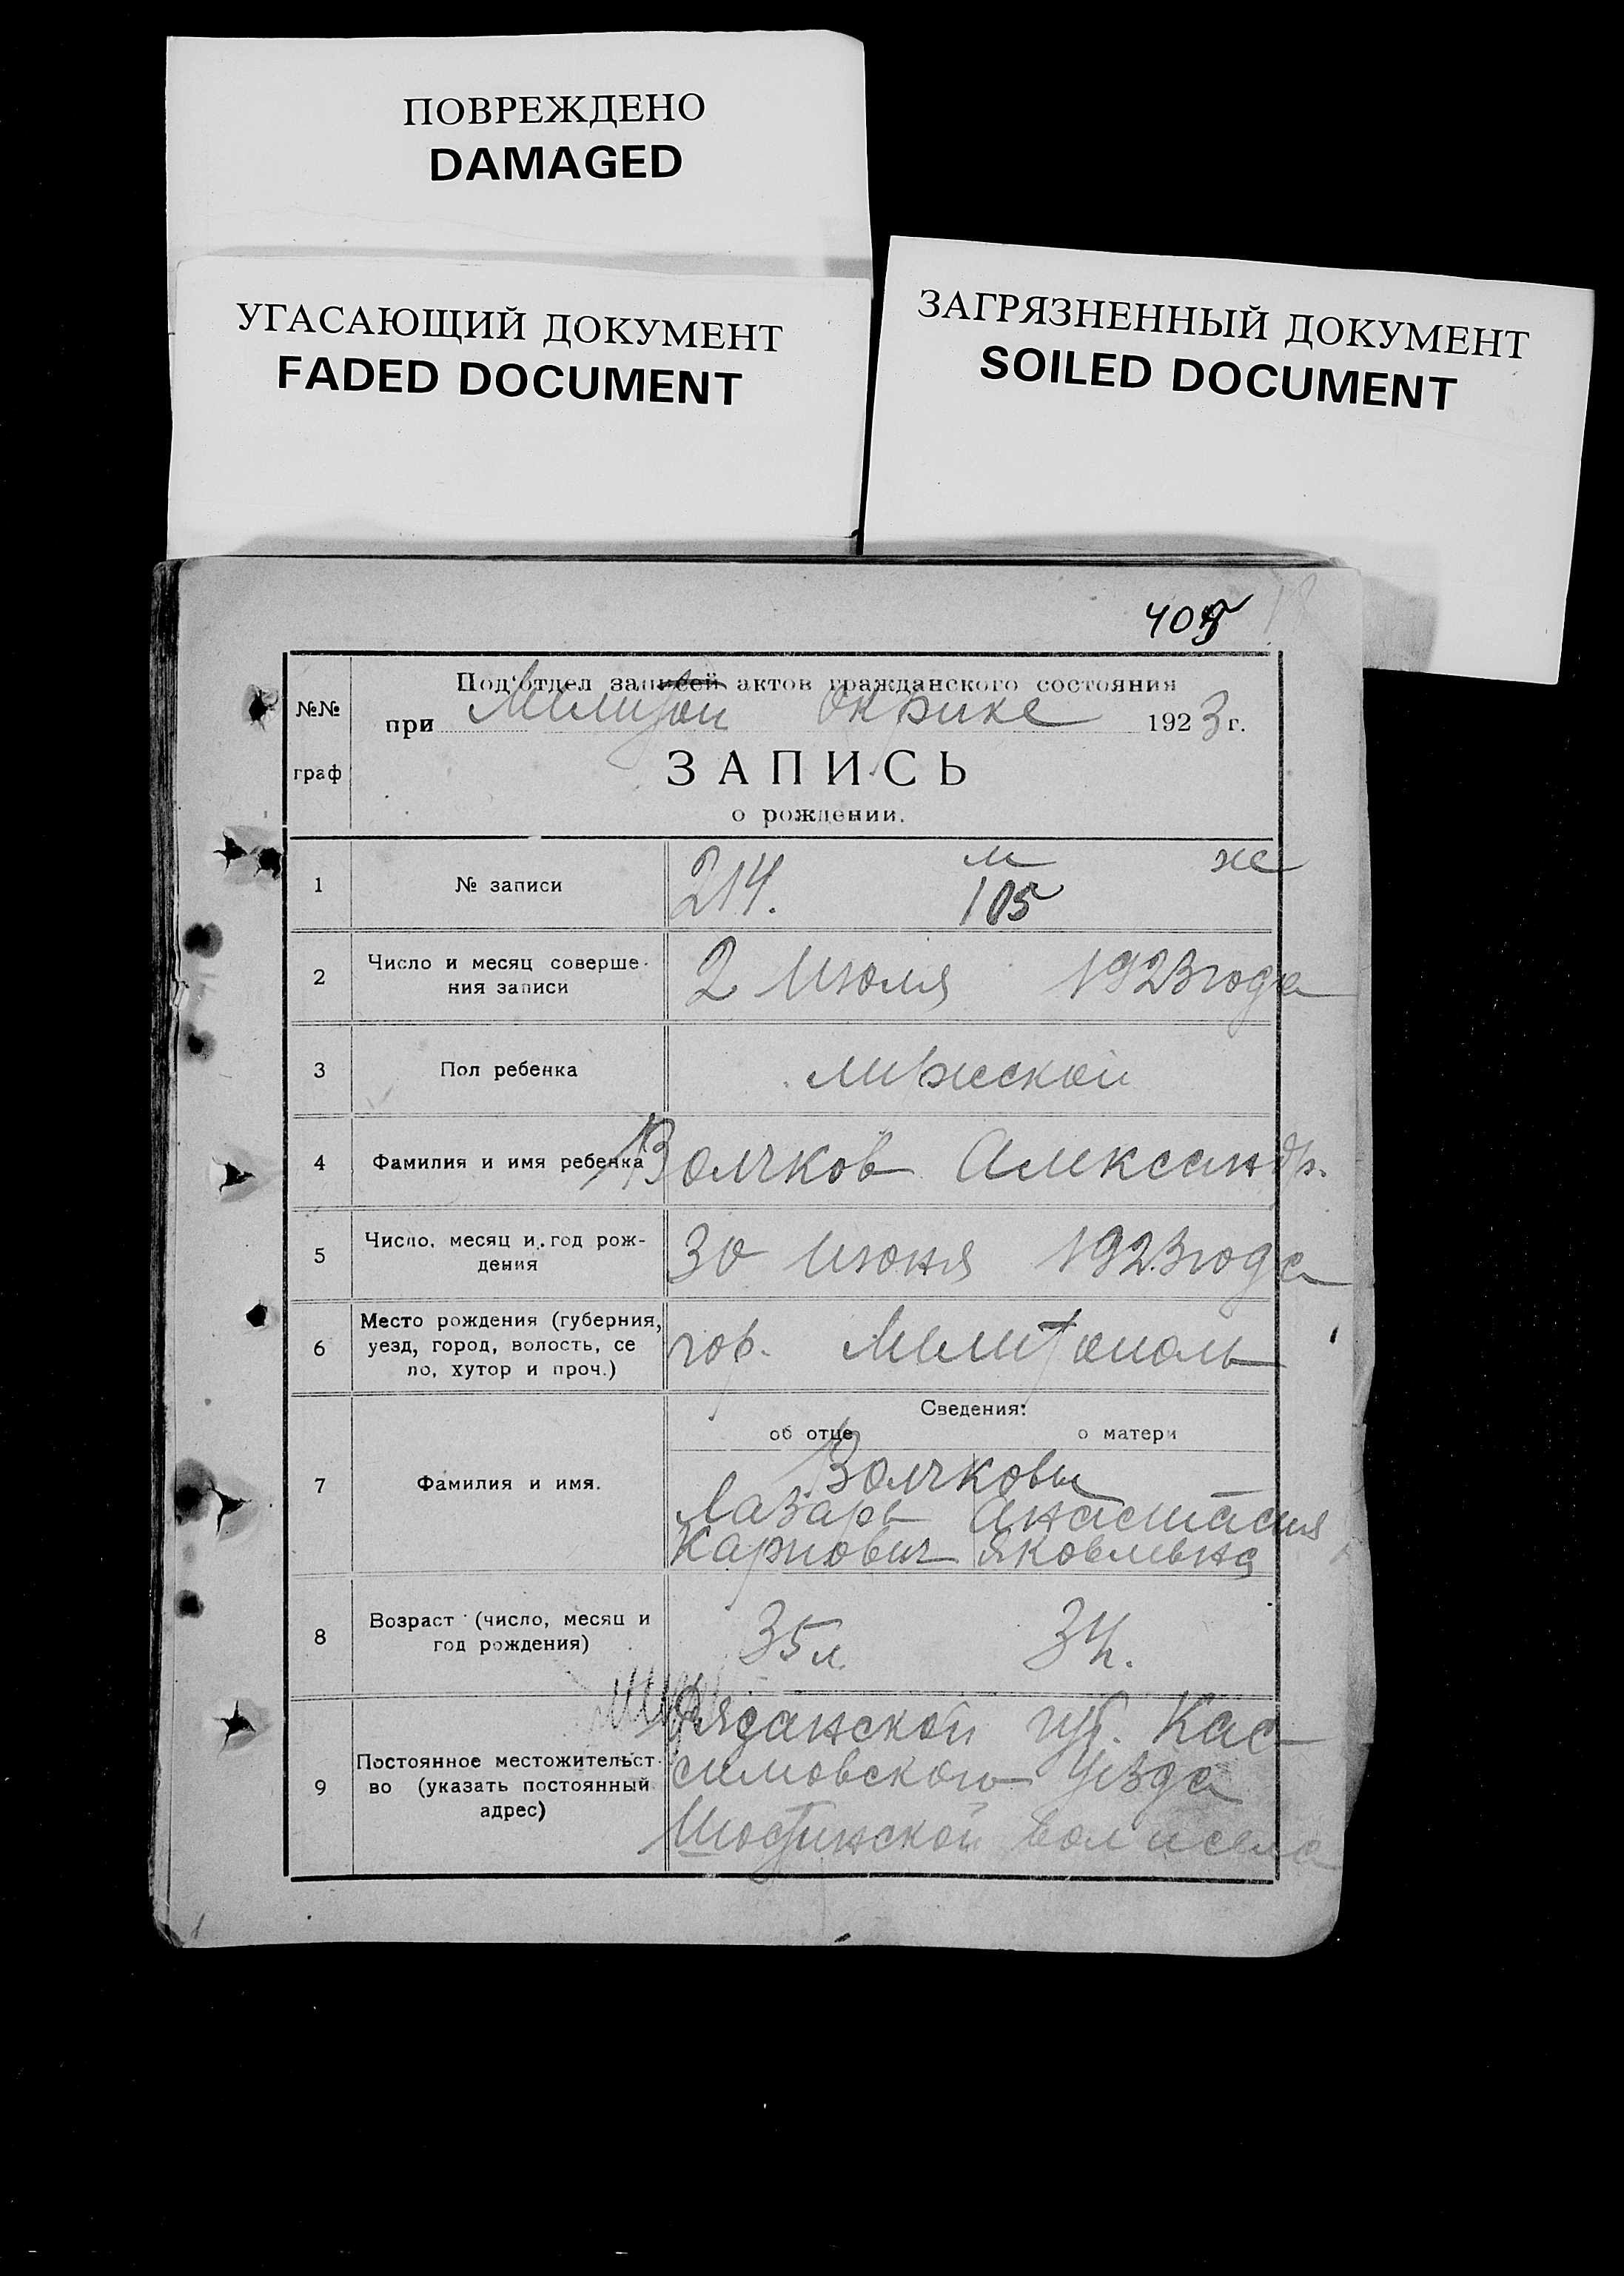 ПОВРЕЖДЕНО
DAMAGED
УГАСАЮЩИЙ ДОКУМЕНТ
FADED DOCUMENT
ЗАГРЯЗНЕННЫЙ ДОКУМЕНТ
SOILED DOCUMENT
405
№№ граф
Под'отдел записей актов гражданского состояния
при Мелитоп Окрике 1923 г.
ЗАПИСЬ
о рождении.
м же
1 № записи 214. 105
2 Число и месяц соверше-
ния записи 2 Июля 1923 года
3 Пол ребенка мужской
4 Фамилия и имя ребенка Волчков Александр.
5 Число, месяц и год рож-
дения 30 июня 1923 года
6 Место рождения (губерния,
уезд, город, волость, се
ло, хутор и проч.) гор. Мелитополь
Сведения:
об отце о матери
7 Фамилия и имя. Волчковы
Лазарь Анастасия
Карпович Яковлевна
8 Возраст (число, месяц и
год рождения) 35 л. 34.
9 Постоянное местожительст-
во (указать постоянный
адрес) Рязанской губ. Кас-
симовского уезда
Шостинской вол и села